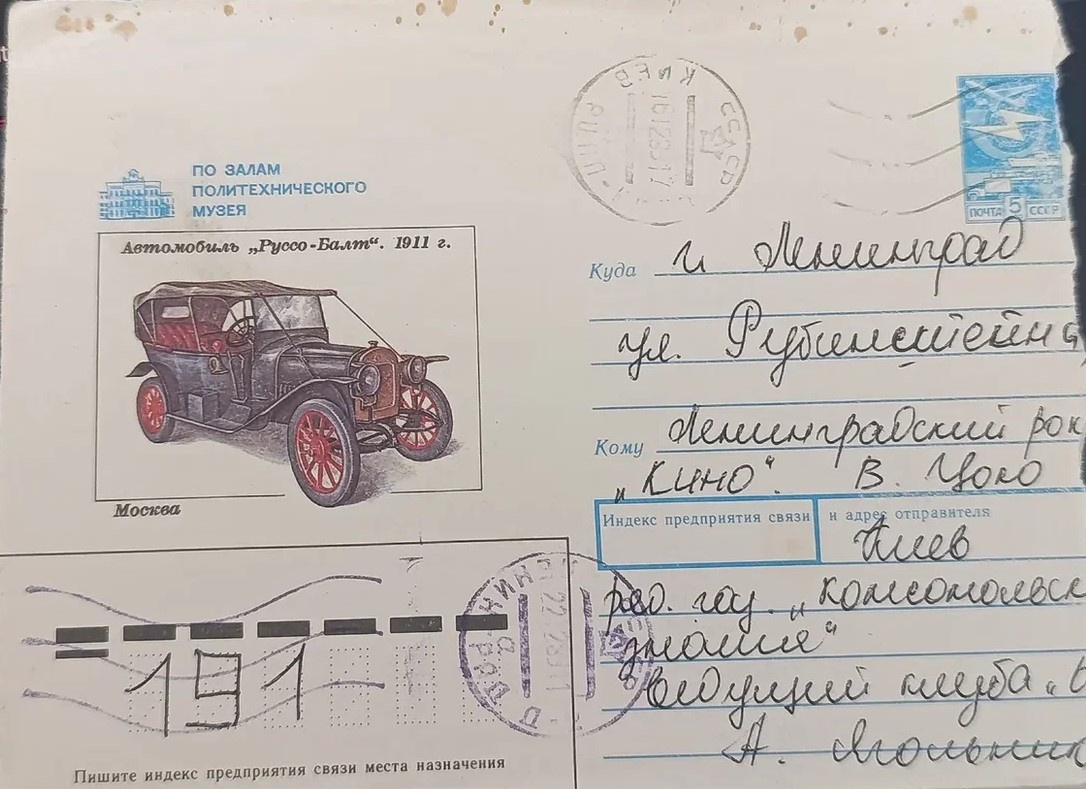 ПО ЗАЛАМ
ПОЛИТЕХНИЧЕСКОГО
МУЗЕЯ
Автомобиль „Руссо-Балт“. 1911 г.
Москва
КИЕВ
СССР
ПОЧТА 5 СССР
Куда г. Ленинград
ул. Рубинштейна
Кому Ленинградский рок
„КИНО“. В. Цою
Индекс предприятия связи и адрес отправителя
Киев
ред. газ. „Комсомольск
знамя“
Ведущий клуба
А. Ягольник
191
Пишите индекс предприятия связи места назначения